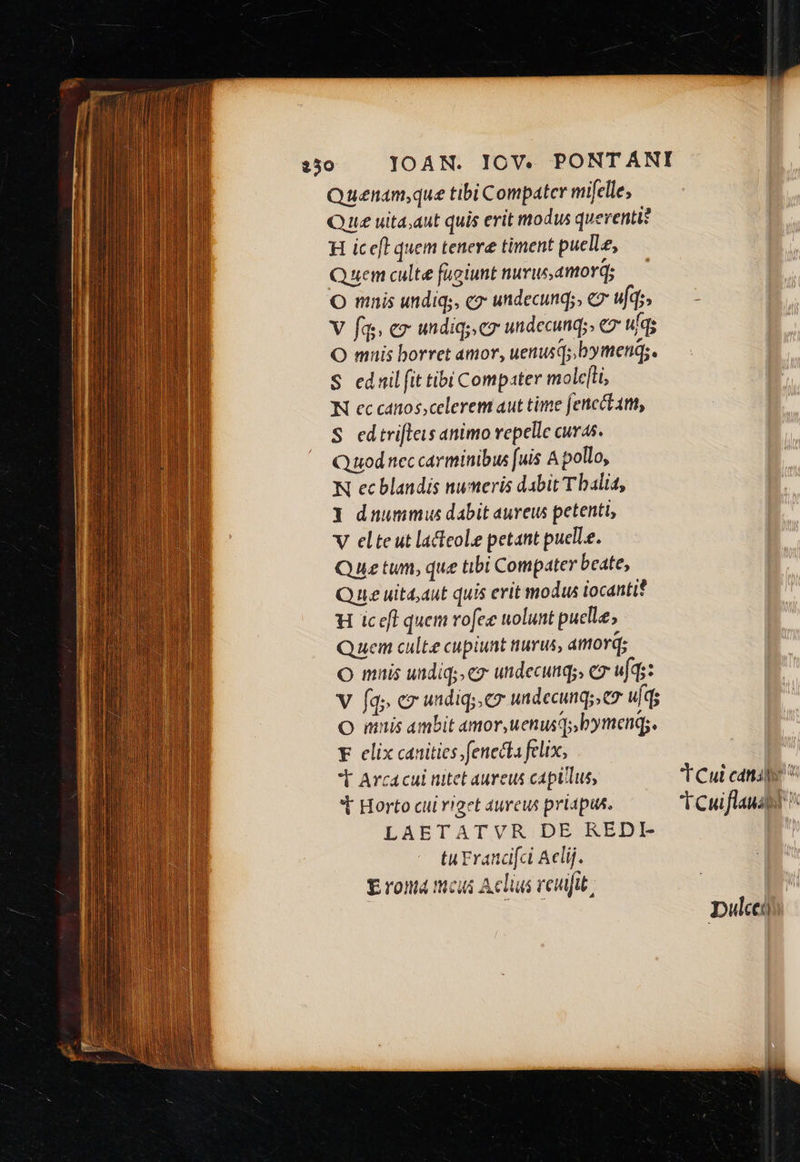 230 IOAN. IOV. PONTANI
Quenam,que tibi Compater miſelle,
Que uita,aut quis erit modus querenti?
H ic eſt quem teneræ timent puellæ,
Quem cultæ fugiunt nurus,amorq́;
O mnis undiq;, & undecunq;, & uſq;,
V ſq;, & undiq;,& undecunq;, & uſq;
O mnis horret amor, uenusq́;,hymenq́;.
S ed nil ſit tibi Compater moleſti,
N ec canos,celerem aut time ſenectam,
S ed triſteis animo repelle curas.
Quod nec carminibus ſuis Apollo,
N ec blandis numeris dabit Thalia,
I d nummus dabit aureus petenti,
V el te ut lacteolæ petant puellæ.
Quæ tum, quæ tibi Compater beate,
Quæ uita,aut quis erit modus iocanti?
H ic eſt quem roſeæ uolunt puellæ,
Quem cultæ cupiunt nurus, amorq́;
O mnis undiq;,& undecunq;, & uſq;:
V ſq;, & undiq;,& undecunq;,& uſq;
O mnis ambit amor,uenusq́;,hymenq́;.
F elix canities,ſenecta felix,
† Arca cui nitet aureus capillus,
† Horto cui riget aureus priapus.
LAETATVR DE REDI-
tu Franciſci Aelij.
E roma meus Aelius reuiſit,
† Cui
† Cui
Dulce